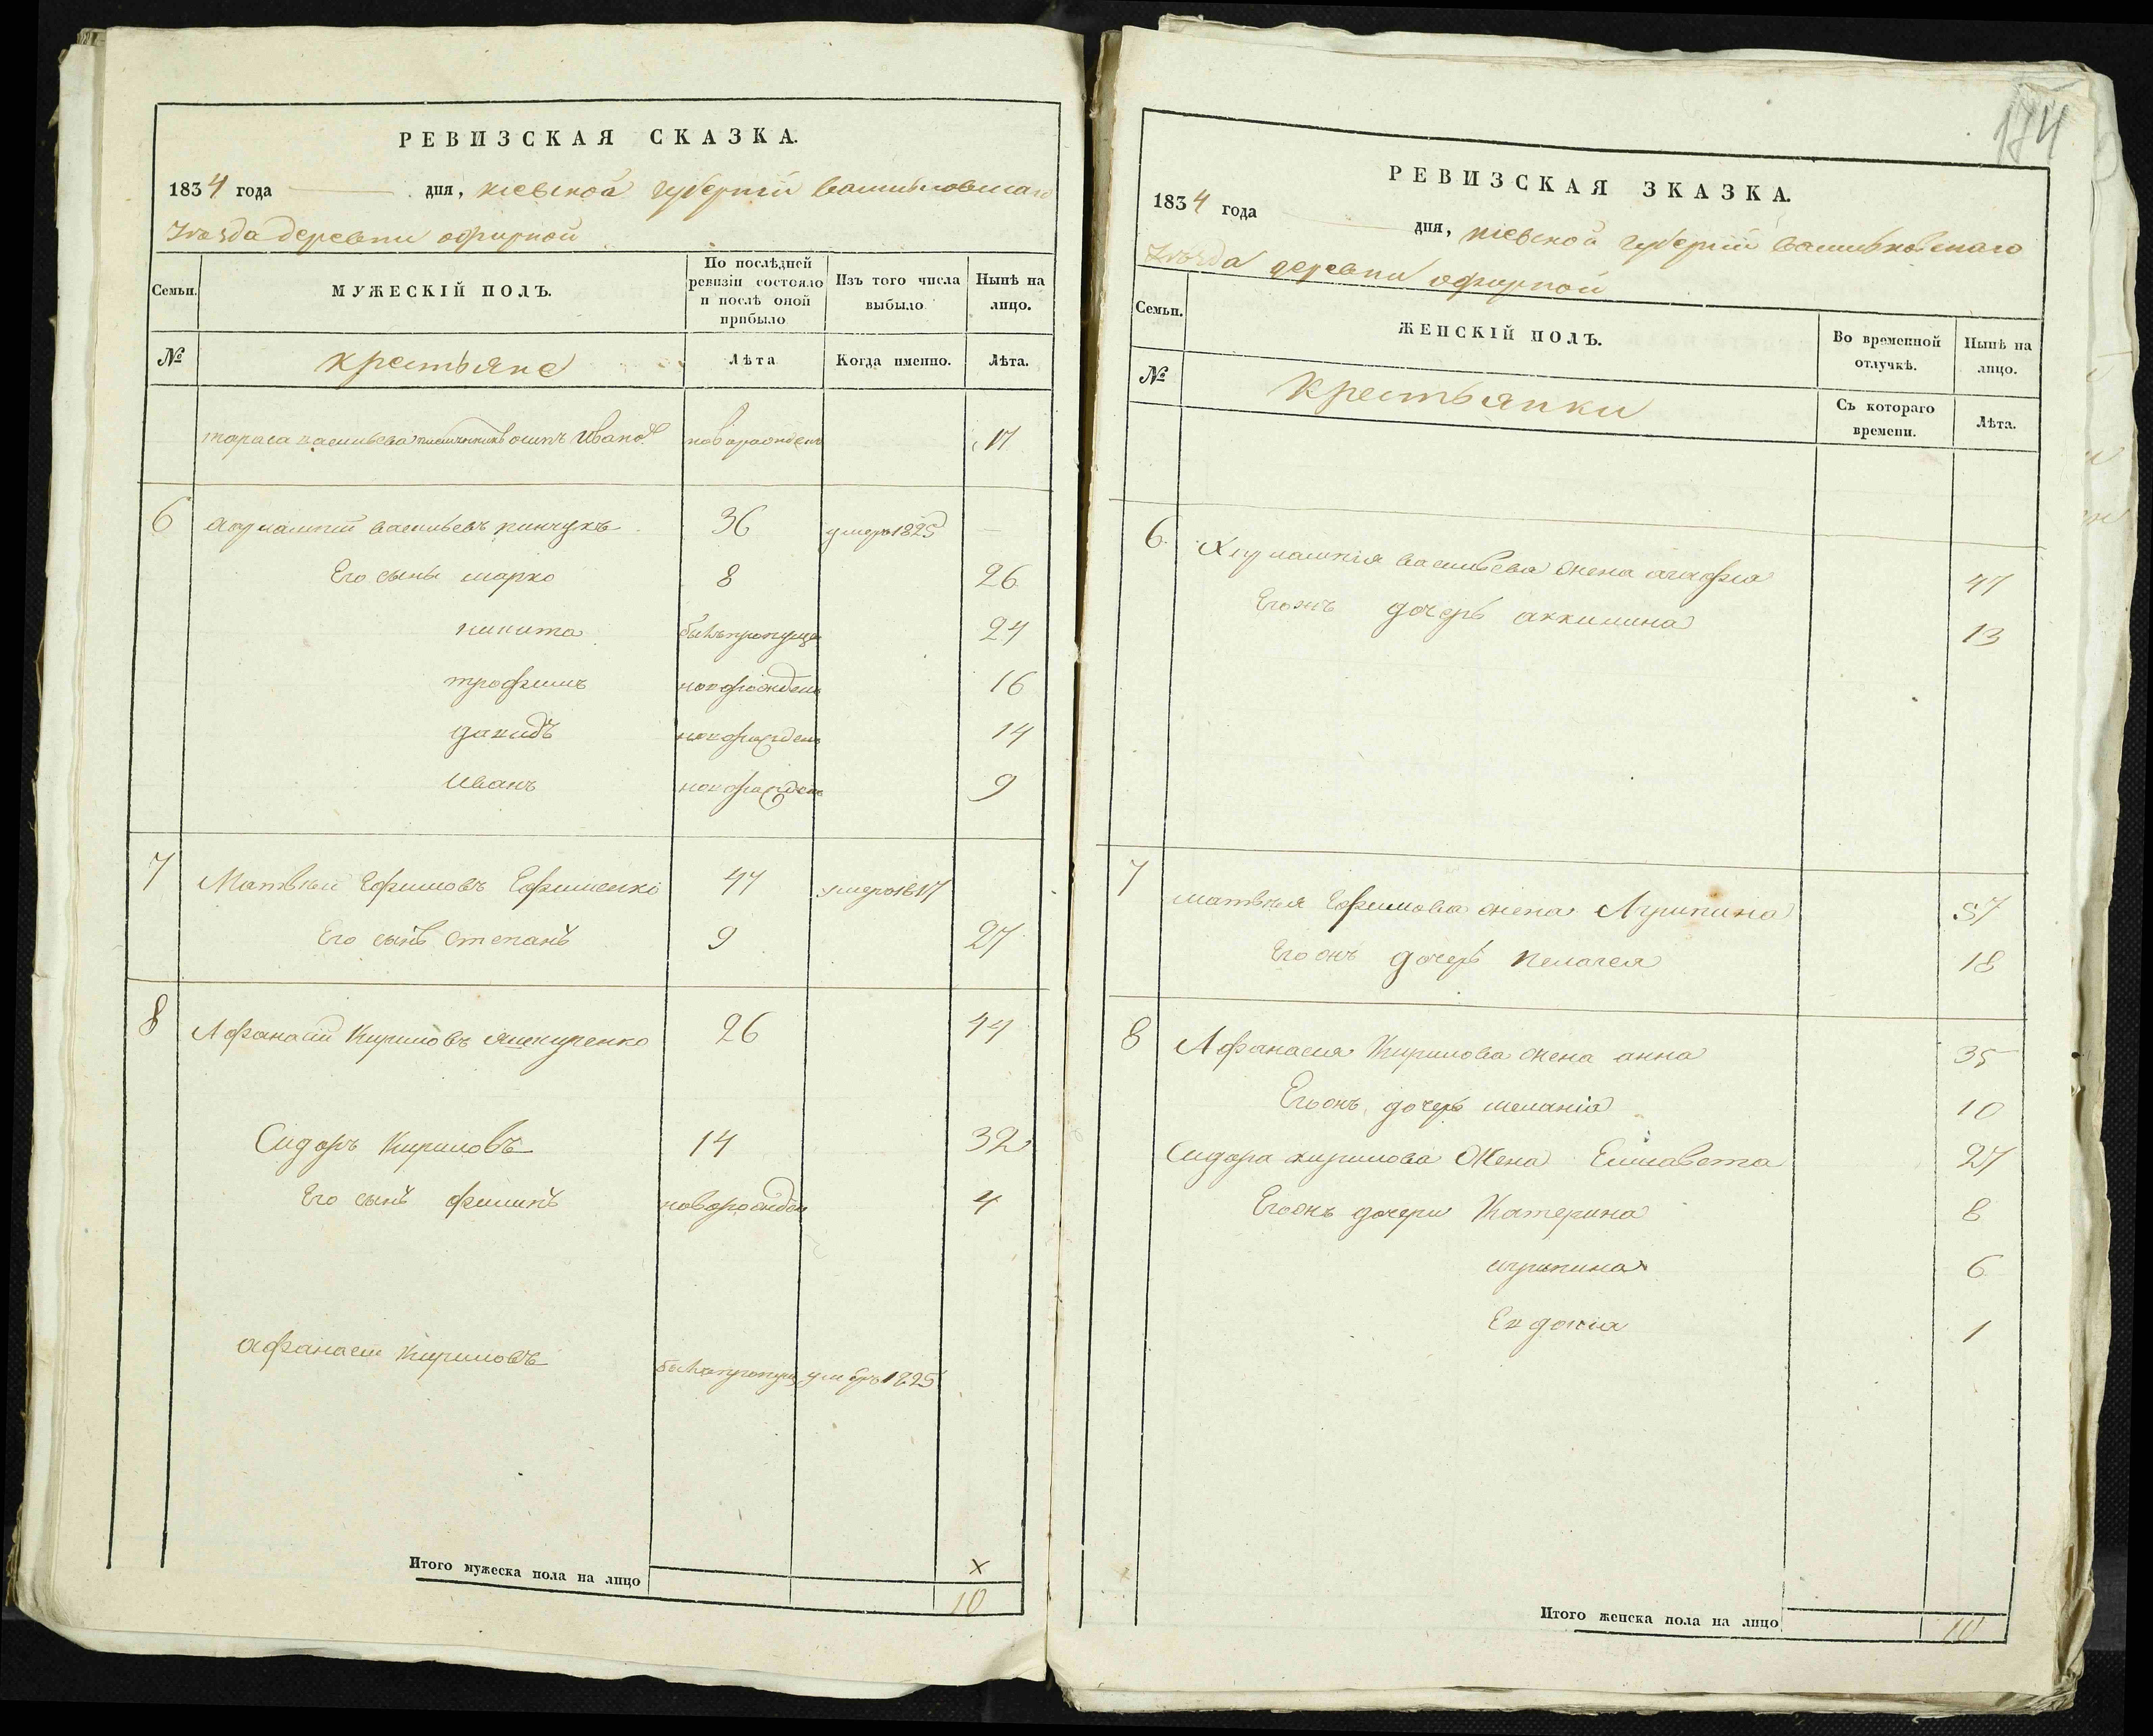 РЕВИЗСКАЯ СКАЗКА.
1834 года дня, кіевской губерніи васильковскаго
уезда деревни офирной
Семьи. МУЖЕСКІЙ ПОЛЪ. По послѣдней ревизіи состояло и послѣ оной прибыло Изъ того числа выбыло Нынѣ на лицо.
№ крестьяне Лѣта Когда именно. Лѣта.
тараса васильева осипъ Иванов новорожден 17
6 василѣевъ пинчукъ 36 умеръ 1825 —
Его сыны марко 8 26
никита былъ пропущен 24
трофимъ новорожденъ 16
давидъ новорожденъ 14
Иванъ новорожденъ 9
7 Матвѣй Ефимовъ Ефименко 47 умеръ 1817
Его сынъ степанъ 9 27
8 Афанасій Кириловъ 26 44
Сидоръ Кириловъ 14 32
Его сынъ филипъ новорожден 4
афанасий Кириловъ былъ пропущ умеръ 1825
Итого мужеска пола на лицо ×
10
174
РЕВИЗСКАЯ ЗКАЗКА.
1834 года дня, кіевской губерніи васильковскаго
уезда деревни офирной
Семьи. ЖЕНСКІЙ ПОЛЪ. Во временной отлучкѣ. Нынѣ на лицо.
№ Крестьянки Съ котораго времени. Лѣта.
6 васильева жена агафія 47
Егожъ дочерь аккилина 13
7 матвѣя Ефимова жена Агрипина 57
Егожъ дочерь пелагея 18
8 Афанасія Кирилова жена анна 35
Егожъ дочерь меланія 10
Сидора кирилова Жена Елисавета 27
Егожъ дочери Катерина 8
агрипина 6
Евдокія 1
Итого женска пола на лицо 10